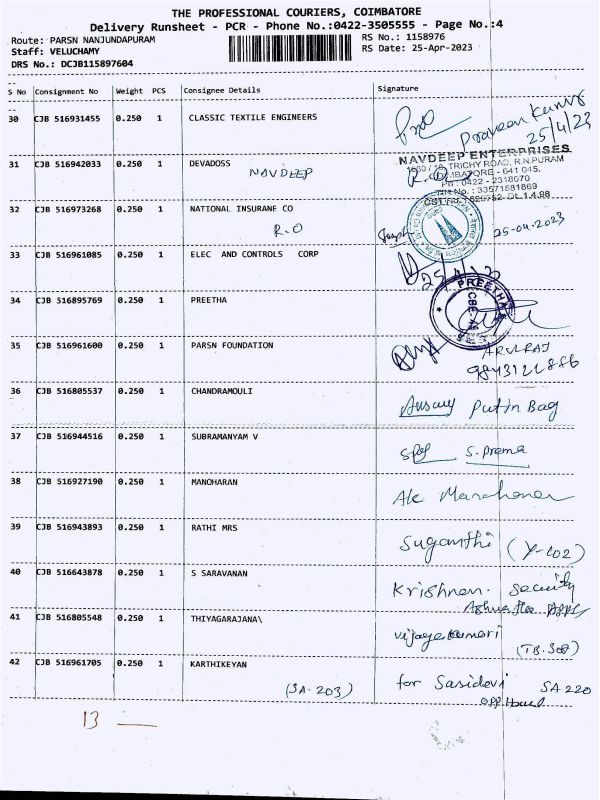 THE PROFESSIONAL COURIERS, COIMBATORE
Delivery Runsheet - PCR - Phone No.:0422-3505555 - Page No.:4
Route: PARSN NANJUNDAPURAM
RS No.: 1158976
Staff: VELUCHAMY
RS Date: 25-Apr-2023
DRS No.: DCJB115897604
S No Consignment No Weight PCS Consignee Details Signature
30 CJB 516931455 0.250 1 CLASSIC TEXTILE ENGINEERS
Praveen Kumar
25/4/23
31 CJB 516942033 0.250 1 DEVADOSS
NAVDEEP
NAVDEEP ENTERPRISES
TRICHY ROAD, R.N.PURAM
COIMBATORE - 641 045.
PH : 0422 - 2318070
33571681869
32 CJB 516973268 0.250 1 NATIONAL INSURANE CO
R.O
25-04-2023
33 CJB 516961085 0.250 1 ELEC AND CONTROLS CORP
34 CJB 516895769 0.250 1 PREETHA
PREETHA
35 CJB 516961600 0.250 1 PARSN FOUNDATION
ARULRAJ
36 CJB 516805537 0.250 1 CHANDRAMOULI
Put in Bag
37 CJB 516944516 0.250 1 SUBRAMANYAM V
S. Prema
38 CJB 516927190 0.250 1 MANOHARAN
39 CJB 516943893 0.250 1 RATHI MRS
Suganthi (Y-102)
40 CJB 516643878 0.250 1 S SARAVANAN
Krishnan. Security
41 CJB 516805548 0.250 1 THIYAGARAJANA\
Vijayakumari
42 CJB 516961705 0.250 1 KARTHIKEYAN
(SA-203)
for Sasidevi SA 220
13